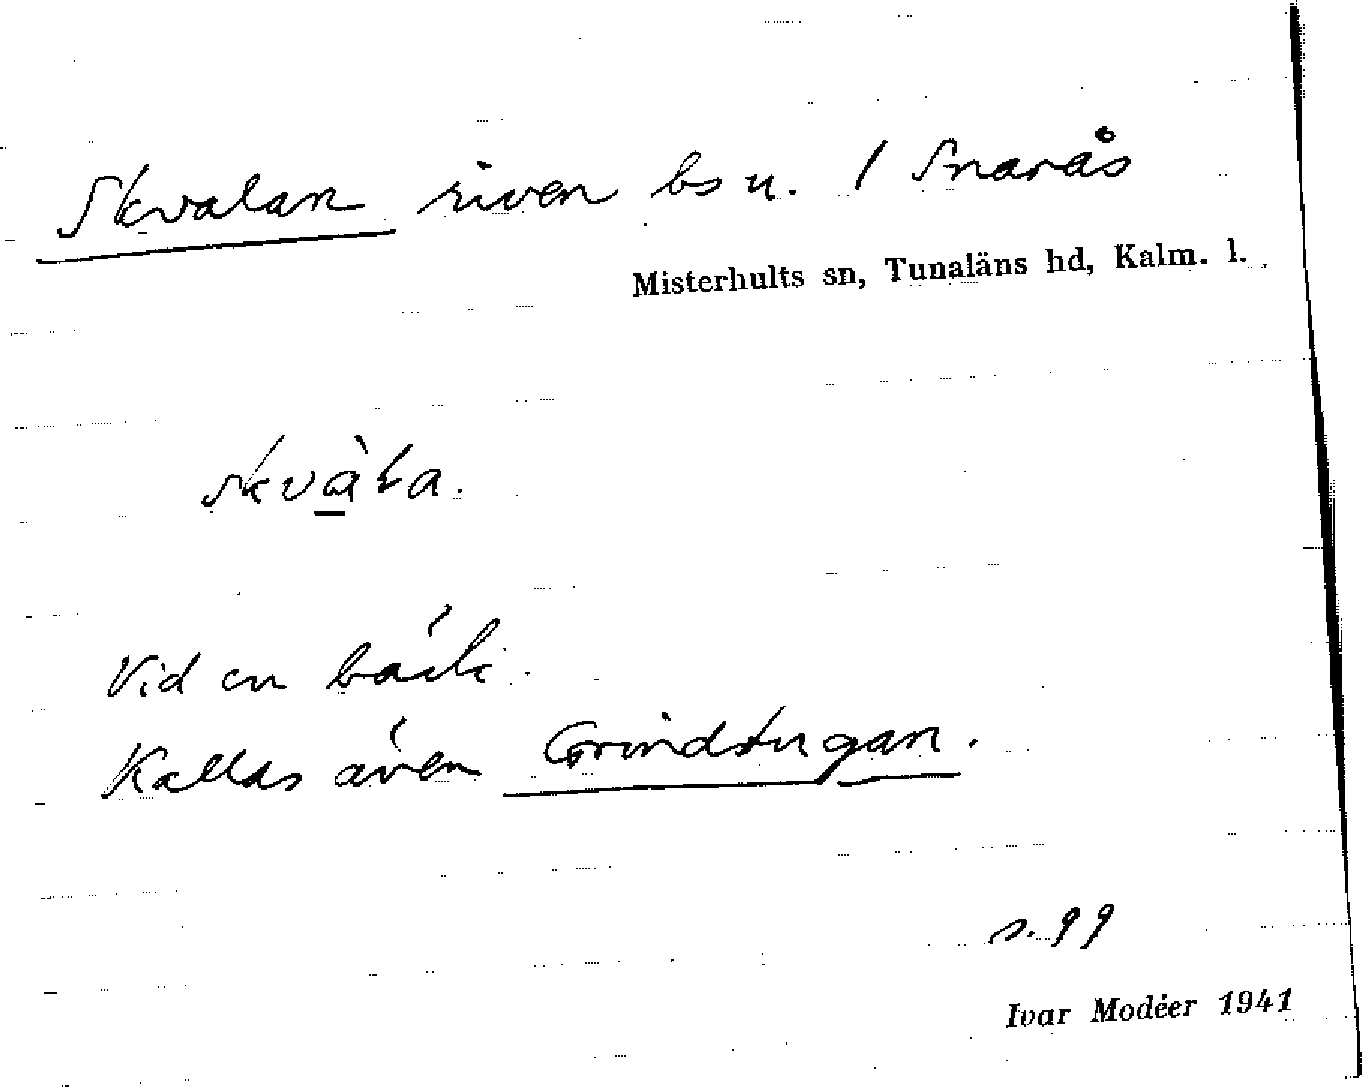 Skvalan riven bs u. / Snarås
Misterhults sn, Tunaläns hd, Kalm. l.
skvàła.
Vid en bäck.
Kallas även Grindstugan.
s. 99
Ivar Modéer 1941